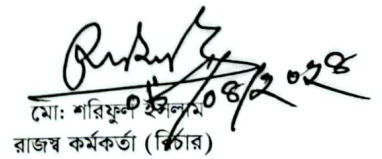 ০৮/০৪/২০২৪
মো: শরিফুল ইসলাম
রাজস্ব কর্মকর্তা (বিচার)